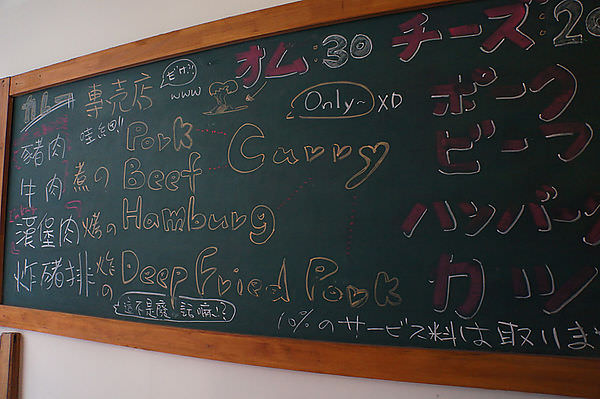 カレー 専売店 www オム:30 チーズ:20
Only~ XD
豬肉 Pork Curry ポーク
牛肉 煮の Beef ビーフ
漢堡肉 烤の Hamburg ハンバーグ
炸豬排 炸の Deep Fried Pork カツ
這不是廢話嘛!?
10%のサービス料は取りま